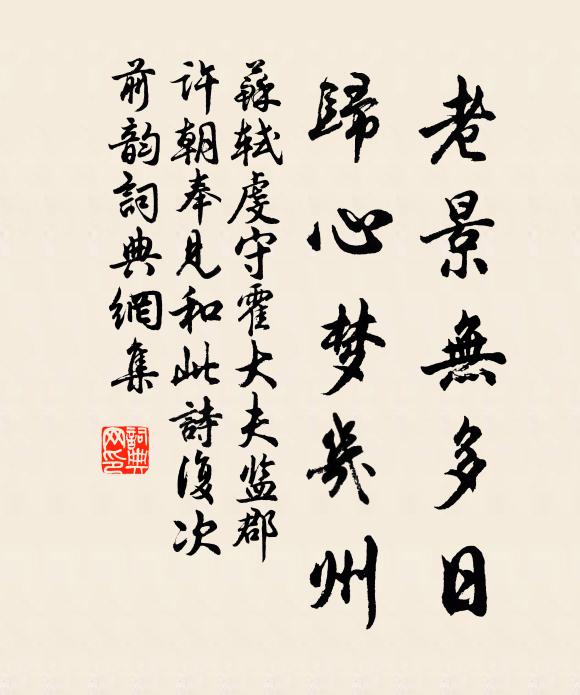 老景無多日
歸心梦幾州
蘇軾虔守霍大夫监郡
许朝奉見和此詩復次
前韵詞典網集
詞典网印